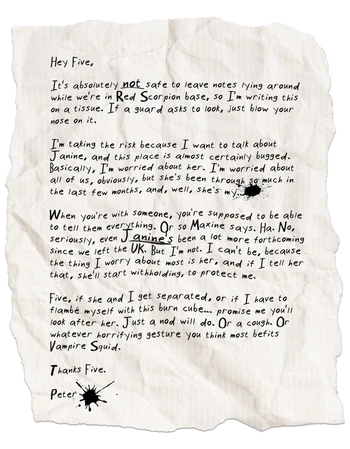 Hey Five,
It's absolutely not safe to leave notes lying around
while we're in Red Scorpion base, so I'm writing this
on a tissue. If a guard asks to look, just blow your
nose on it.
I'm taking the risk because I want to talk about
Janine, and this place is almost certainly bugged.
Basically, I'm worried about her. I'm worried about
all of us, obviously, but she's been through so much in
the last few months, and, well, she's my
When you're with someone, you're supposed to be able
to tell them everything. Or so Maxine says. Ha. No,
seriously, even Janine's been a lot more forthcoming
since we left the UK. But I'm not. I can't be, because
the thing I worry about most is her, and if I tell her
that, she'll start withholding, to protect me.
Five, if she and I get separated, or if I have to
flambé myself with this burn cube... promise me you'll
look after her. Just a nod will do. Or a cough. Or
whatever horrifying gesture you think most befits
Vampire Squid.
Thanks Five.
Peter